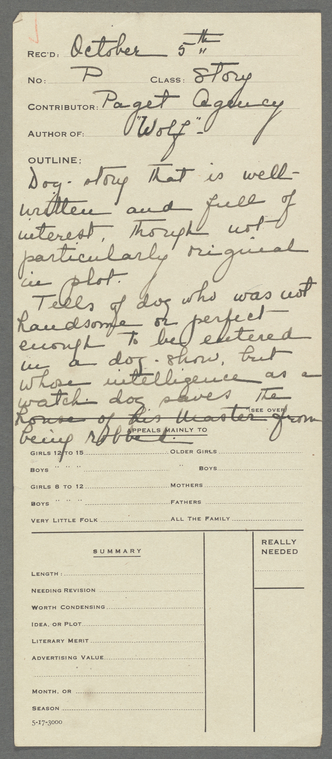 REC'D: October 5th
NO: P CLASS: Story
CONTRIBUTOR: Paget Agency
AUTHOR OF: "Wolf"-
OUTLINE:
Dog-story that is well-
written and full of
interest, though not
particularly original
in plot.
Tells of dog who was not
handsome or perfect
enough to be entered
in a dog-show, but
whose intelligence as a
watch dog saves the
house of his master from
(SEE OVER)
being robbed.
APPEALS MAINLY TO
GIRLS 12 TO 15 OLDER GIRLS
BOYS " " " " BOYS
GIRLS 8 TO 12 MOTHERS
BOYS " " " FATHERS
VERY LITTLE FOLK ALL THE FAMILY
SUMMARY
REALLY
NEEDED
LENGTH:
NEEDING REVISION
WORTH CONDENSING
IDEA, OR PLOT
LITERARY MERIT
ADVERTISING VALUE
MONTH, OR
SEASON
5-17-3000